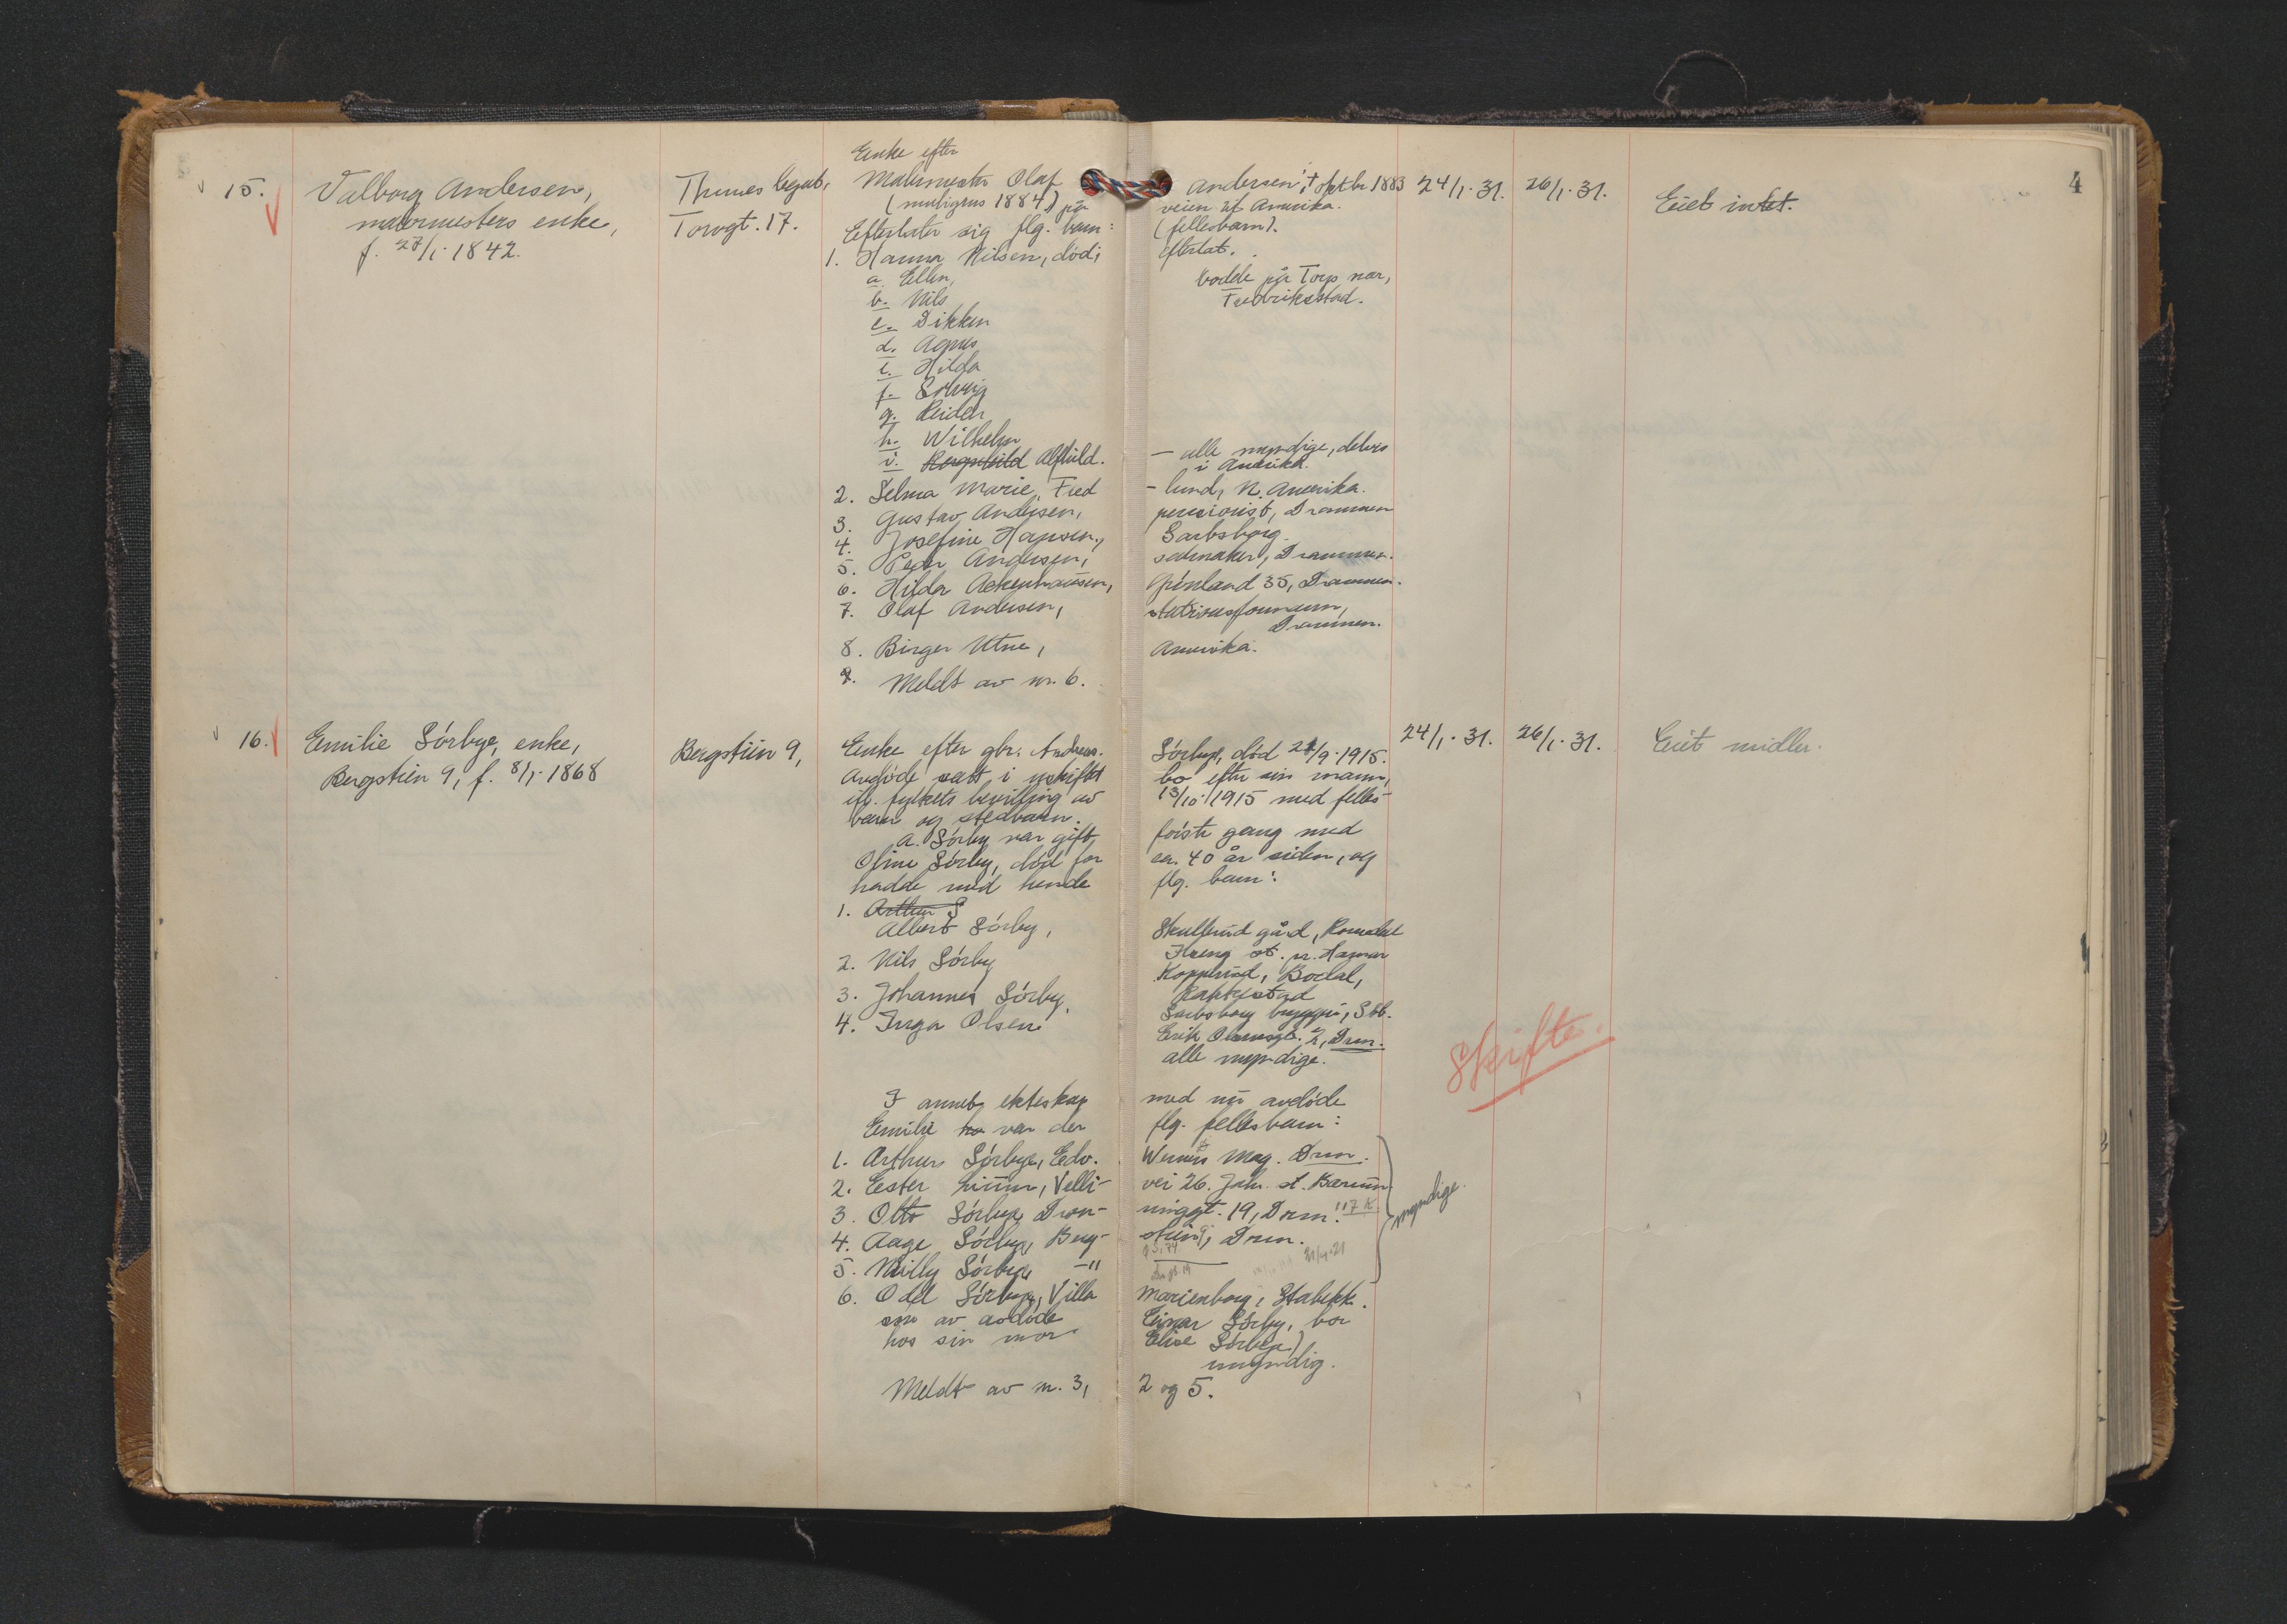 4
15. Valborg Andersen,
malermesters enke,
f. 27/1. 1842.
Thunes legat,
Torvgt. 17.
Enke efter
Malermester Olaf Andersen, † oktbr 1883
(muligens 1884) på veien til Amerika.
Efterlater sig flg. barn: (fellesbarn).
1. Hanna Nilsen, död, efterlat.
a. Ellen, bodde på Torp nær,
b. Nils Fredrikstad.
c. Dikken
d. Agnes
e. Hilda
f. Solveig
g. Reidar
h. Wilhelm
i. Ragnhild Alfhild. — alle myndige, delvis
i Amerika.
2. Selma Marie Fred - lund, N. Amerika.
3. Gustav Andersen, pensionist, Drammen
4. Josefine Hansen, Sarbsborg.
5. Peder Andersen, salmaker, Drammen.
6. Hilda Ackenhausen, Grönland 35, Drammen.
7. Olaf Andersen, stationsformann,
Drammen.
8. Birger Utne, Amerika.
9. Meldt av nr. 6.
24/1. 31. 26/1. 31. Eiet intet.
16. Emilie Sörbye, enke,
Bergstien 9, f. 8/1. 1868
Bergstien 9,
Enke efter gbr. Andreas Sörbye, död 21/9. 1915.
Avdöde satt i uskiftet bo efter sin mann,
ifl. fylkets bevilling av 13/10. 1915 med felles-
barn og stedbarn.
A. Sörby var gift förste gang med
Oline Sörby, död for ca. 40 år siden, og
hadde med hende flg. barn:
1. Arthur S
Albert Sörby, Skullerud gård, Romedal
Ilseng st. pr. Hamar
2. Nils Sörby Kopperud, Bodal,
Rakkestad
3. Johannes Sörby, Sarbsborg bryggeri, Sbb.
4. Inga Olsen Erik Olsensgt. 2, Drm.
alle myndige.
I annet ekteskap med nu avdöde
Emilie ho var der flg. fellesbarn:
1. Arthur Sörbye, Edv. Werners Mag. Drm.
2. Ester Linum, Velli- vei 26. Jahr. st. Bærum
3. Otto Sörbye, Dron- ninggt. 19, Drm.
4. Aage Sörbye, Berg- stien 9, Drm.
5. Milly Sörbye, —"
myndige.
6. Odd Sörbye, Villa Marienborg, Stabekk.
som av avdöde Einar Sörby, bor
hos sin mor Elise Sörbye)
umyndig.
Meldt av nr. 3, 2 og 5.
24/1. 31. 26/1. 31. Eiet midler.
Skifte.